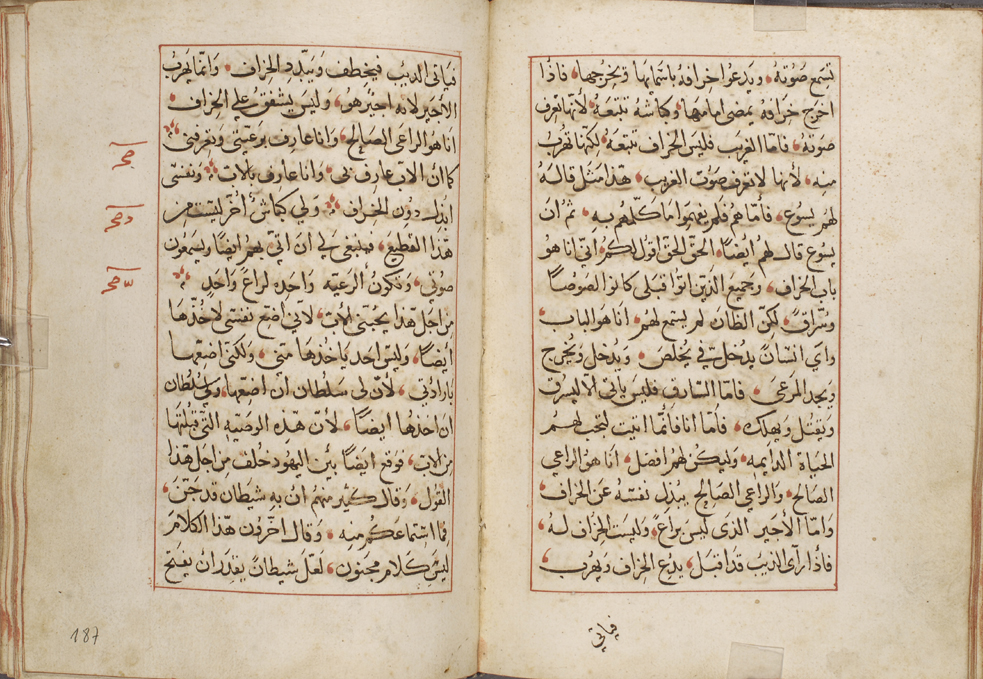 تسمع صوته، ويدعوا خرافه باسمايها ويخرجها، فاذا
اخرج خرافه يمضي امامها، وكباشه تتبعه، لانها تعرف
صوته، فامّا الغريب فليس الخراف تتبعه، لكنها تهرب
منه، لأنها لا تعرف صوت الغريب، هذا مثل قاله
لهم يسوع، فأمّا هم فلم يعلموا ما كلّمهم به، ثم ان
يسوع قال لهم ايضًا، الحق الحق اقول لكم، انّي انا هو
باب الخراف، وجميع الذين اتوا قبلي كانوا لصوصًا
وسُرّاقً، لكن الظان لم يستمع لهم، انا هو الباب،
واي انسانً يدخل فيّ يخلص، ويدخل ويخرج
ويجد المرعي، فامّا السارق فليس ياتي الّا ليسرق
ويقتل ويهلك، فأمّا انا فأنّما اتيت لتجب لهم
الحياة الدايمه، وليكن لهم افضل، انا هو الراعي
الصالح، والراعي الصالح يبذل نفسه عن الخراف،
وامّا الأجير الذى ليس براعٍ، وليست الخراف له،
فأذا رآى الذيب قد اقبل، يدع الخراف ويهرب،
فياتي
فياتى الذيب فيخطف ويبدّد الخراف، وانّما يهرب
الأجير لانه اجيرٌ هو، وليس يشفق علي الخراف،
انا هو الراعي الصالح، وانا عارف برعيتي وتعرفني
كما انّ الاب عارف بي، وانا عارف بالاب، ونفسي
ابذل دون الخراف، ولي كباش اُخر ليست من
هذا القطيع، فينبغي لي أن آتي بهم ايضًا ويسمعون
صوتي، وتكون الرعيّه واحده لراعٍ واحدٍ
من اجل هذا يحبّني الأب، لأنّي اضع نفسي لاخذها
ايضًا، وليس احد ياخذها منّي، ولكنّي اضعها
بارادتي، لأن لي سلطان ان اضعها، ولي سلطان
ان اخذها ايضًا، لأن هذه الوصيّه التي قبلتها
من الاب، فوقع ايضًا بين اليهود خلف من اجل هذا
القول، وقال كثير منهم ان به شيطان قد جنّ،
فما استماعكم منه، وقال اخرون هذا الكلام
ليس كلام مجنون، لعلّ شيطانً يقدر ان يفتح
187